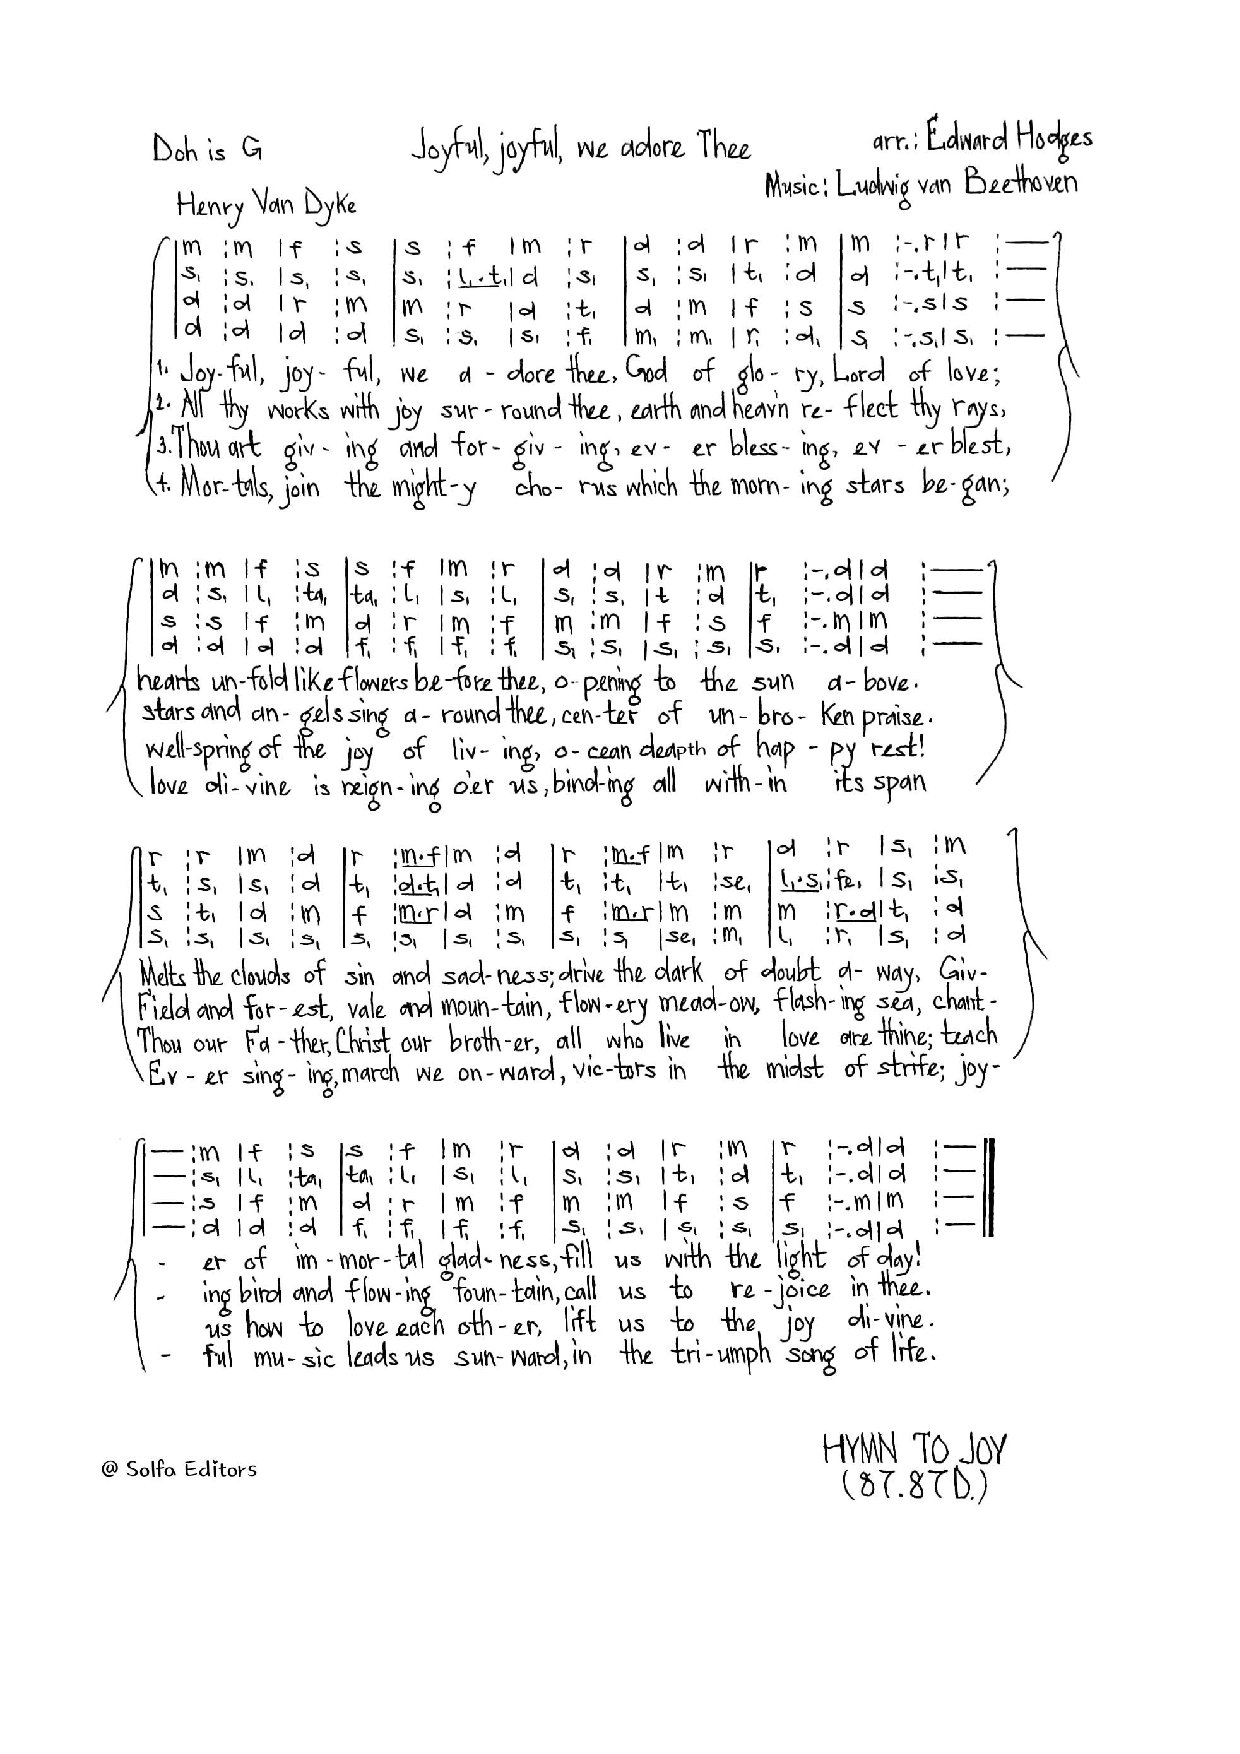 Doh is G
Joyful, joyful, we adore Thee
arr.: Edward Hodges
Music: Ludwig van Beethoven
Henry Van Dyke
|m :m |f :s |s :f |m :r |d :d |r :m |m :-.r|r :—
|s₁ :s₁ |s₁ :s₁ |s₁ :l₁.t₁|d :s₁ |s₁ :s₁ |t₁ :d |d :-.t₁|t₁ :—
|d :d |r :m |m :r |d :t₁ |d :m |f :s |s :-.s|s :—
|d :d |d :d |s₁ :s₁ |s₁ :f₁ |m₁ :m₁ |r₁ :d₁ |s₁ :-.s₁|s₁ :—
1. Joy-ful, joy- ful, we a - dore thee, God of glo - ry, Lord of love;
2. All thy works with joy sur - round thee, earth and heav'n re- flect thy rays,
3. Thou art giv - ing and for - giv - ing, ev - er bless - ing, ev - er blest,
4. Mor-tals, join the might-y cho - rus which the morn- ing stars be-gan;
|m :m |f :s |s :f |m :r |d :d |r :m |r :-.d|d :—
|d :s₁ |l₁ :ta₁ |ta₁ :l₁ |s₁ :l₁ |s₁ :s₁ |t :d |t₁ :-.d|d :—
|s :s |f :m |d :r |m :f |m :m |f :s |f :-.m|m :—
|d :d |d :d |f₁ :f₁ |f₁ :f₁ |s₁ :s₁ |s₁ :s₁ |s₁ :-.d|d :—
hearts un-fold like flowers be-fore thee, o-pening to the sun a-bove.
stars and an- gels sing a- round thee, cen-ter of un- bro - ken praise.
well-spring of the joy of liv - ing, o - cean deapth of hap - py rest!
love di-vine is reign-ing o'er us, bind-ing all with-in its span
|r :r |m :d |r :m.f|m :d |r :m.f|m :r |d :r |s₁ :m
|t₁ :s₁ |s₁ :d |t₁ :d.t₁|d :d |t₁ :t₁ |t₁ :se₁ |l₁.s₁:fe₁ |s₁ :s₁
|s :t₁ |d :m |f :m.r|d :m |f :m.r|m :m |m :r.d|t₁ :d
|s₁ :s₁ |s₁ :s₁ |s₁ :s₁ |s₁ :s₁ |s₁ :s₁ |se₁ :m₁ |l₁ :r₁ |s₁ :d
Melts the clouds of sin and sad-ness; drive the dark of doubt a- way, Giv-
Field and for-est, vale and moun-tain, flow-ery mead-ow, flash-ing sea, chant-
Thou our Fa-ther, Christ our broth-er, all who live in love are thine; teach
Ev - er sing - ing, march we on-ward, vic-tors in the midst of strife; joy-
|— :m |f :s |s :f |m :r |d :d |r :m |r :-.d|d :—
|— :s₁ |l₁ :ta₁ |ta₁ :l₁ |s₁ :l₁ |s₁ :s₁ |t₁ :d |t₁ :-.d|d :—
|— :s |f :m |d :r |m :f |m :m |f :s |f :-.m|m :—
|— :d |d :d |f₁ :f₁ |f₁ :f₁ |s₁ :s₁ |s₁ :s₁ |s₁ :-.d|d :—
- er of im-mor-tal glad-ness, fill us with the light of day!
- ing bird and flow-ing foun-tain, call us to re-joice in thee.
us how to love each oth-er, lift us to the joy di-vine.
- ful mu-sic leads us sun-ward, in the tri-umph song of life.
HYMN TO JOY
@ Solfa Editors
(87.87D.)